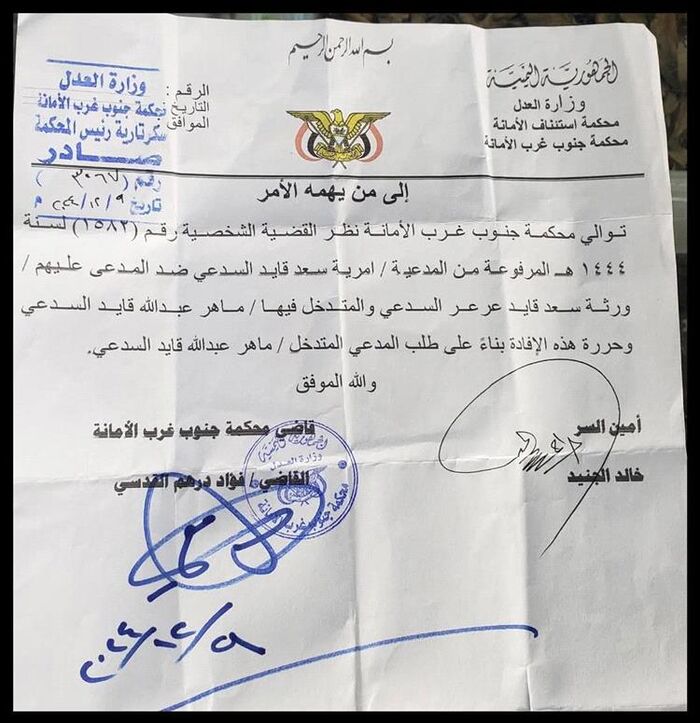 بسم الله الرحمن الرحيم
الجمهورية اليمنية
وزارة العدل
محكمة استئناف الأمانة
محكمة جنوب غرب الأمانة
الرقم :
التاريخ :
الموافق :
وزارة العدل
محكمة جنوب غرب الأمانة
سكرتارية رئيس المحكمة
صادر
رقم (٣٠٦٧)
تاريخ ٩/١٢/ م
إلى من يهمه الأمر
توالي محكمة جنوب غرب الأمانة نظر القضية الشخصية رقم (١٥٨٢) لسنة
١٤٤٤ هـ المرفوعة من المدعية / امرية سعد قايد السدعي ضد المدعى عليهم /
ورثة سعد قايد عرعر السدعي والمتدخل فيها / ماهر عبدالله قايد السدعي
وحررة هذه الإفادة بناءً على طلب المدعي المتدخل / ماهر عبدالله قايد السدعي.
والله الموفق
أمين السر
خالد الجنيد
قاضي محكمة جنوب غرب الأمانة
القاضي / فؤاد درهم القدسي
وزارة العدل
محكمة جنوب غرب الأمانة